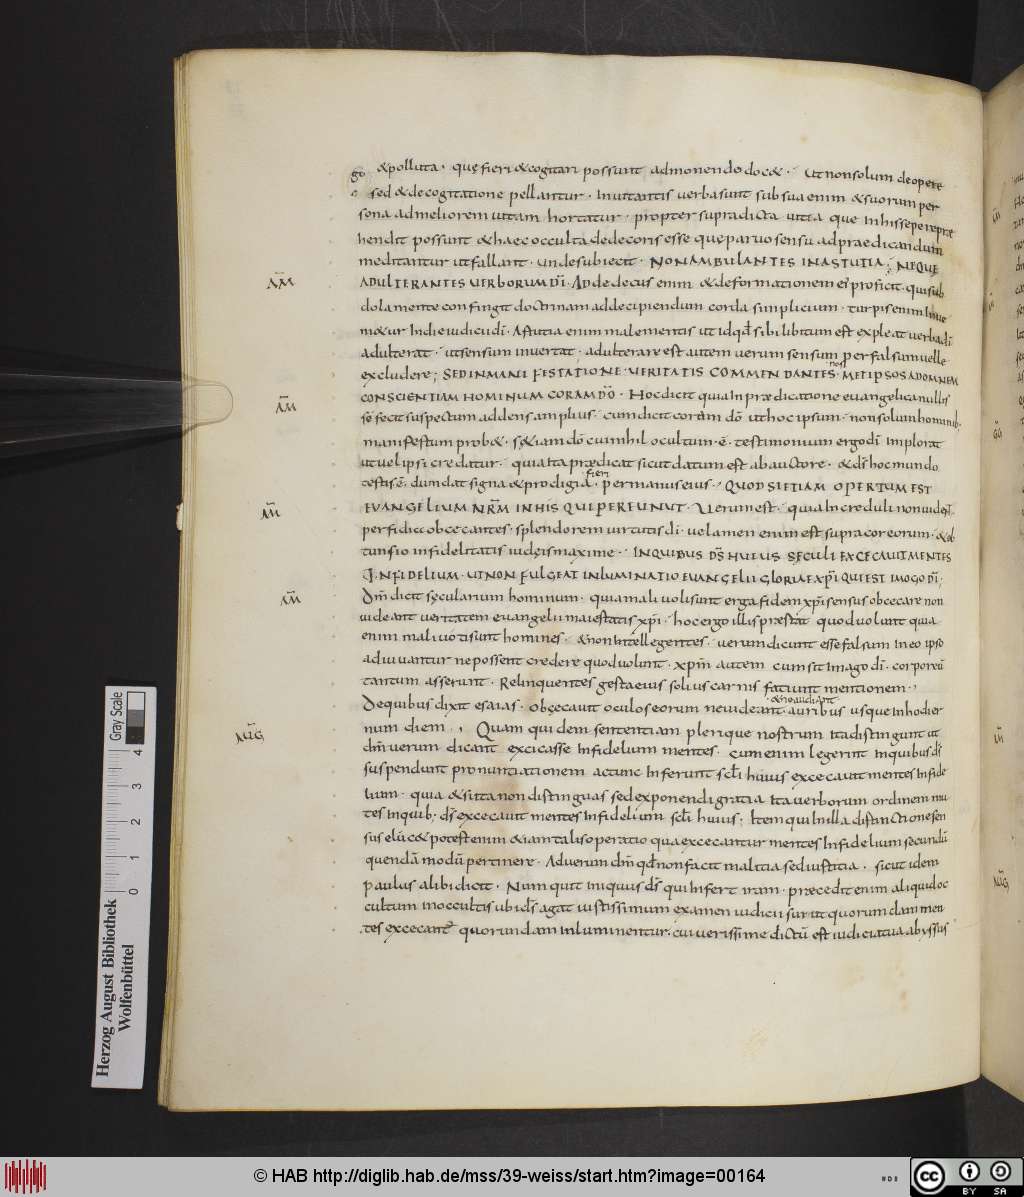 & polluta · quę fieri & cogitari possunt admonendo doc& · Ut non solum de opere
sed & de cogitatione pellantur · Inuitantis uerba sunt sub sua enim & suorum per
sona ad meliorem uitam hortatur · propter supradicta uitia que in his sepe repræ
hendit possunt & haec occulta dedecoris esse que paruo sensu ad praedicandum
meditantur ut fallant · unde subiecit · NON AMBULANTES IN ASTUTIA; NEQUE
AM̄
ADULTERANTES UERBORUM DI · Ad dedecus enim & deformationem ei proficit · qui sub
dola mente confingit doctrinam ad decipiendum corda simplicium · turpis enim Inue
ni&ur In die iudicii di · Astutia enim male mentis ut id qd sibi libitum est expleat uerba di
adulterat · ut sensum inuertat; adulterare est autem uerum sensum per falsum uelle
excludere; SED IN MANIFESTATIONE · UERITATIS COMMENDANTES · METIPSOS AD OMNEM
nos
AM̄
CONSCIENTIAM HOMINUM CORAM DO · Hoc dicit quia In prædicatione euangelica nullis
se fecit suspectum addens amplius · cum dicit coram dō ut hoc ipsum · non solum hominib;
manifestum prob& · s& iam dō cui nihil ocultum · ē · testimonium ergo di Implorat
ut uel ipsi credatur · quia Ita prædicat sicut datum est ab auctore · & ds hoc mundo
testis ē · dum dat signa & prodigia · per manus eius · QUOD SI ETIAM OPERTUM EST
fieri
AM̄
EUANGELIUM NRM IN HIS QUI PEREUNUT · Uerum est · quia Increduli non uident
perfidia obcecantes · splendorem uirtutis di · uelamen enim est supra cor eorum · & ob
tunsio infidelitatis iudęis maxime · IN QUIBUS DS HUIUS SĘCULI EXCECAUIT MENTES
INFIDELIUM · UT NON FULGEAT INLUMINATIO EUANGELII GLORIAE XPI QUI EST IMAGO DI ·
AM̄
Dm dicit sęcularium hominum · quia mali uoli sunt erga fidem xpi sensus obcecare non
uideant ueritatem euangelii maiestatis xpi · hoc ergo illis præstat quod uolunt quia
enim maliuoti sunt homines · & non Intellegentes · uerum dicunt esse falsum In eo ipso
adiuuantur ne possent credere quod uolunt · xpm autem cum sit Imago di · corporeū
tantum asserunt · Relinquentes gesta eius solius carnis faciunt mentionem ·
& non audiant
De quibus dixit esaias · obcęcauit oculos eorum ne uideant · auribus usque In hodier
AUG
num diem · Quam quidem sententiam plerique nostrum Ita distingunt ut
dm uerum dicant excicasse Infidelium mentes · cum enim legerint In quibus ds
suspendunt pronuntiationem ac tunc Inferunt scli huius excecauit mentes Infide
lium · quia & si Ita non distinguas sed exponendi gratia Ita uerborum ordinem mu
tes In quib; ds excecauit mentes Infidelium scli huius; Item qui In illa distinctione sen
sus eluc& potest enim & iam talis operatio qua excecantur mentes Infidelium secundū
quendā modū pertinere · Ad uerum dm qd non facit malitia sed iustitia · sicut idem
paulus alibi dicit · Num quit iniquus ds qui Infert iram · præcedit enim aliquid oc
cultum in occultis ubi ds agat iustissimum examen iudicii sui ut quorumdam men
tes excecant& quorundam Inluminentur · cui uerissime dictū est iudicia tua abyssus
© HAB http://diglib.hab.de/mss/39-weiss/start.htm?image=00164
Herzog August Bibliothek
Wolfenbüttel
Gray Scale
0 1 2 3 4
cc
BY SA